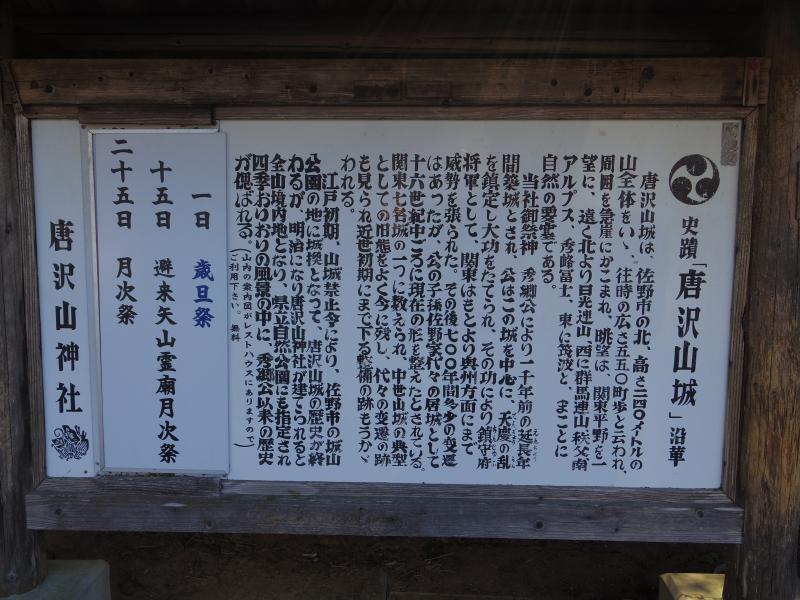 史蹟「唐沢山城」沿革
唐沢山城は、佐野市の北、高さ二四〇メートルの
山全体をいゝ、往時の広さ五五〇町歩と云われ、
周囲を急崖にかこまれ、眺望は、関東平野を一
望に、遠く北より日光連山、西に群馬連山、秩父南
アルプス、秀峰富士、東に筑波と、まことに
自然の要害である。
当社御祭神 秀郷公により一千年前の延長年
間築城とされ、公はこの城を中心に、天慶の乱
を鎮定し大功をたてられ、その功により鎮守府
将軍として、関東はもとより奥州方面にまで
威勢を張られた。その後七〇〇年間多少の変遷
はあったが、公の子孫佐野家代々の居城として
十六世紀中ごろに現在の形を整えたとされている。
関東七名城の一つに数えられ、中世山城の典型
としての旧態をよく今に残し、代々の変遷の跡
も見られ近世初期にまで下る整備の跡もうかゞ
われる。
江戸初期、山城禁止令により、佐野市の城山
公園の地に城楔となって、唐沢山城の歴史が終
わるが、明治になり唐沢山神社が建てられると
全山境内地となり、県立自然公園にも指定され
四季おりおりの風景の中に、秀郷公以来の歴史
が偲ばれる。
(山内の案内図がレストハウスにありますので
ご利用下さい。 無料)
一日 歳旦祭
十五日 避来矢山霊廟月次祭
二十五日 月次祭
唐沢山神社